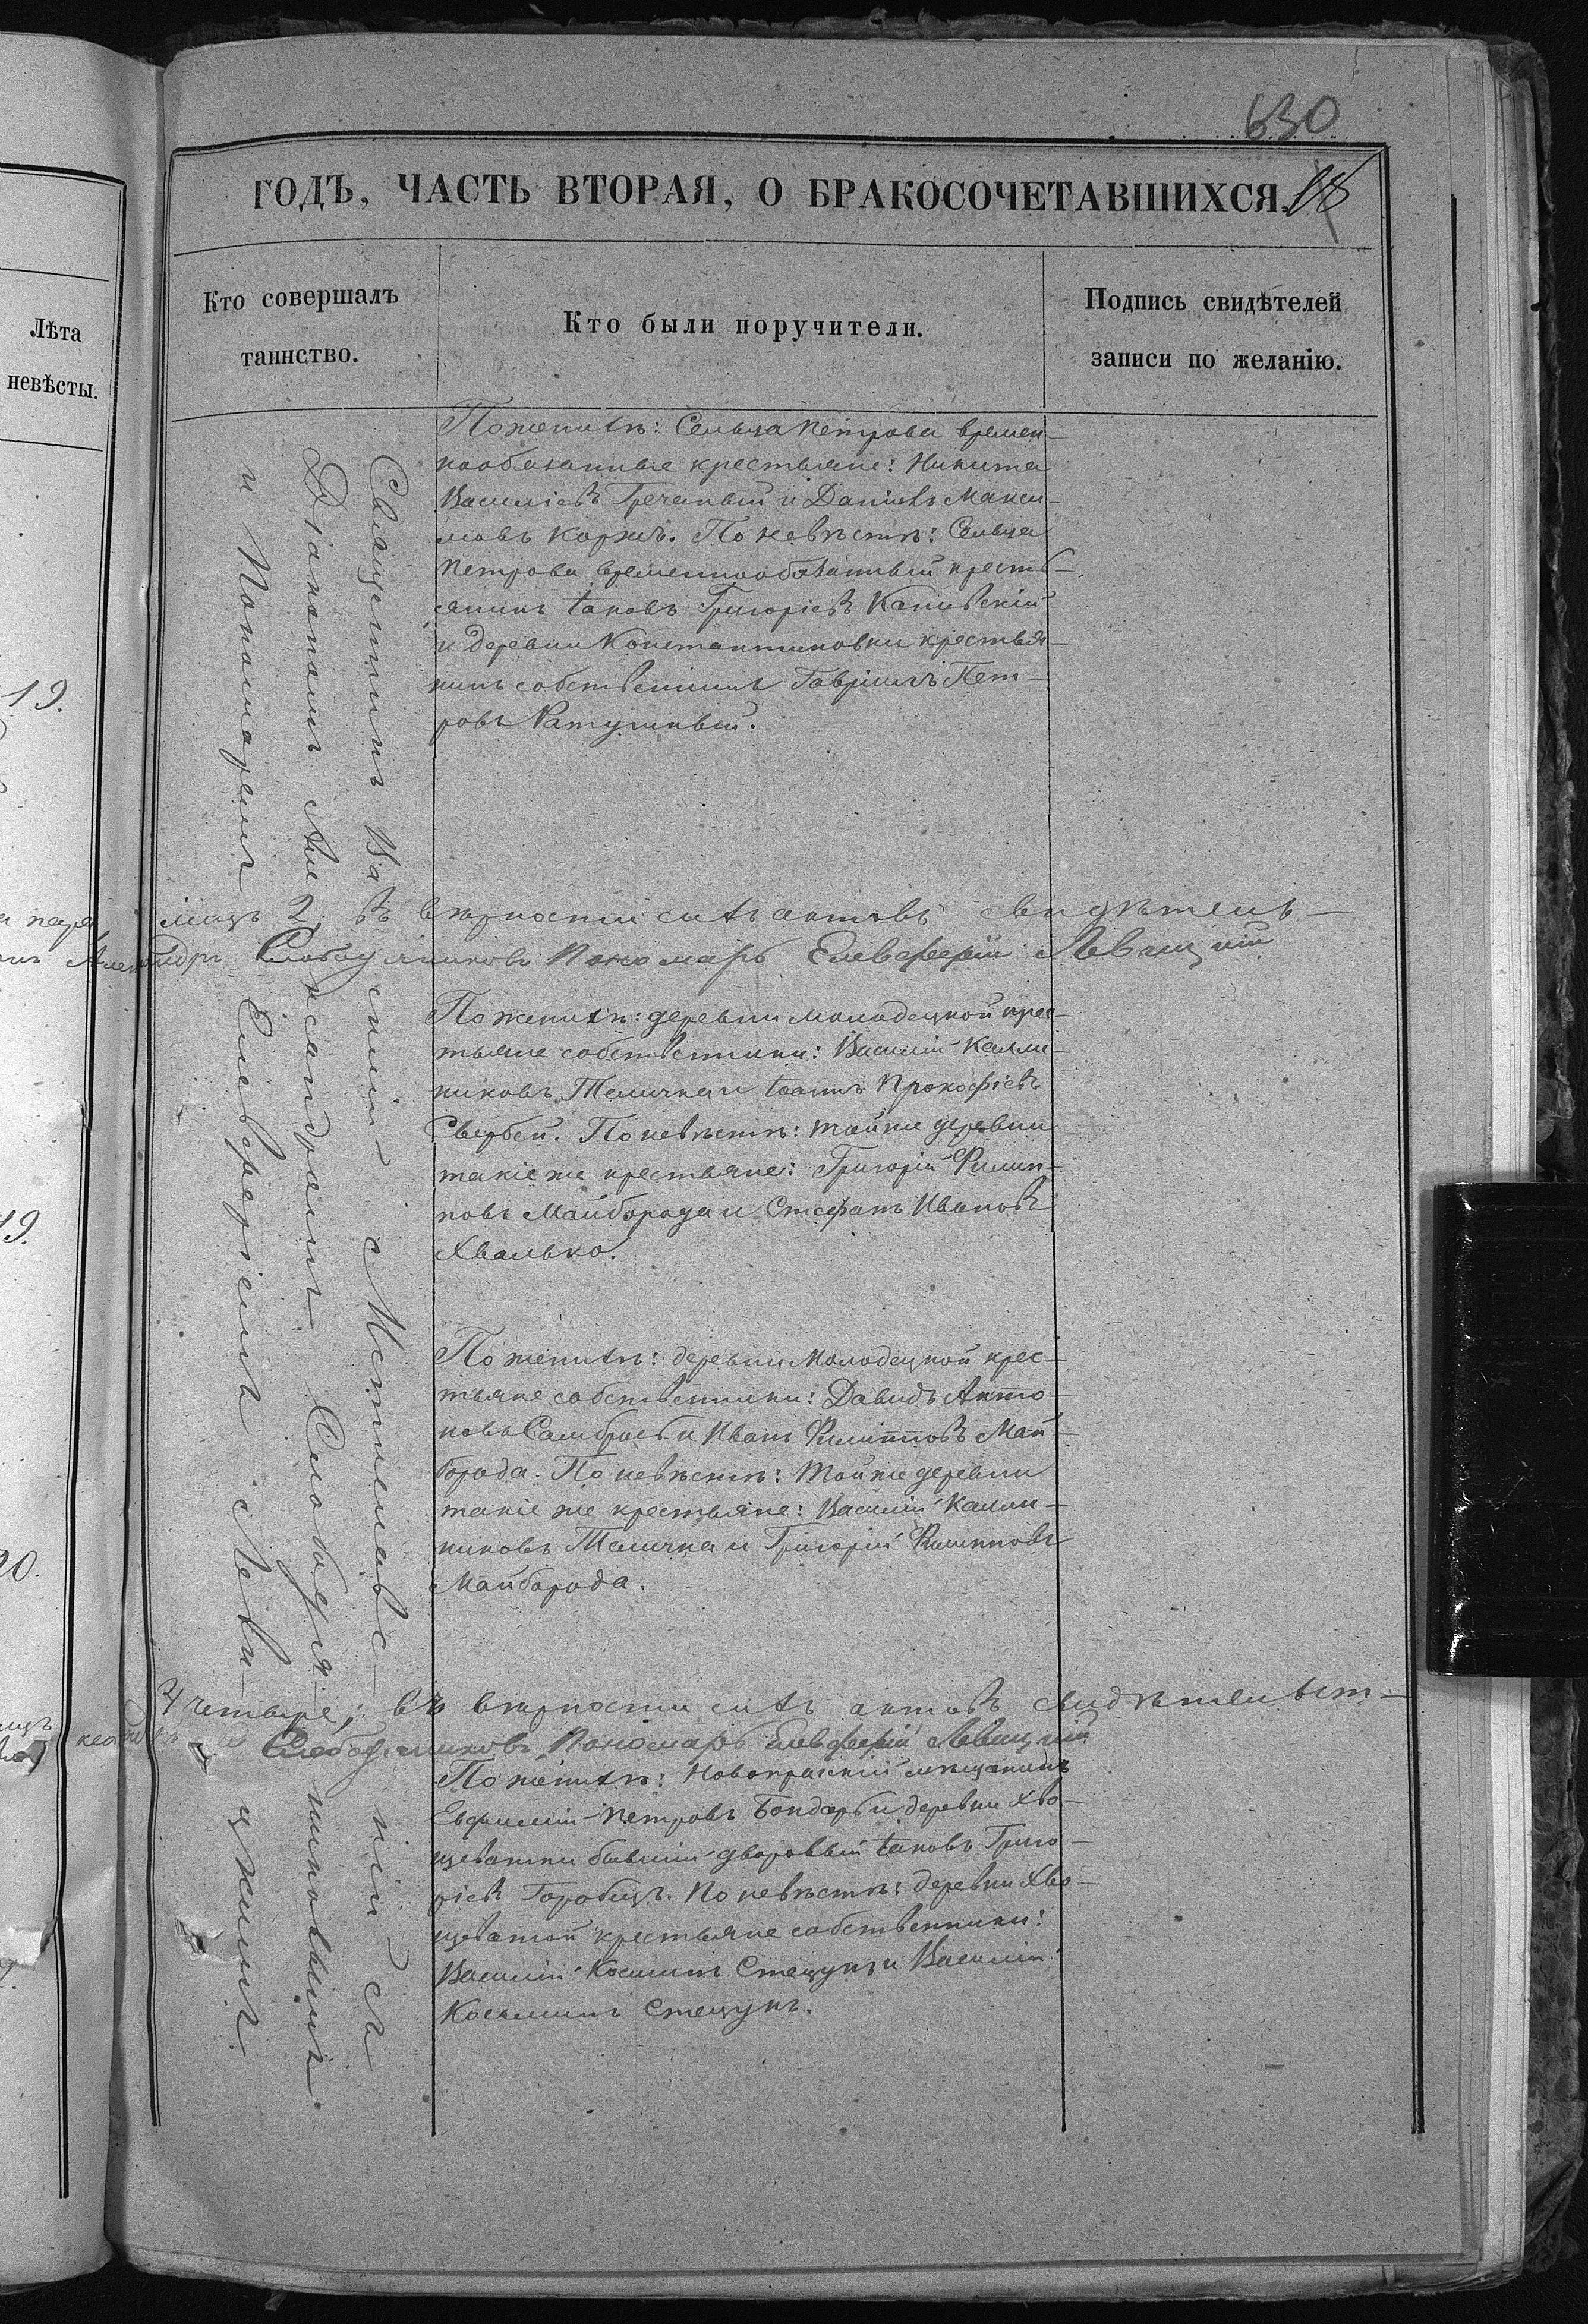 630
ГОДЪ, ЧАСТЬ ВТОРАЯ, О БРАКОСОЧЕТАВШИХСЯ.
18
Лѣта
невѣсты.
Кто совершалъ
таинство.
Кто были поручители.
Подпись свидѣтелей
записи по желанію.
19.
19.
20.
Священникъ Василій Истилаевскій съ
Діакономъ Александромъ Слободяниковымъ
и Пономаремъ Елевферіемъ Левицкимъ.
По женихѣ: Сельца Петрова времен-
нообязанные крестьяне: Никита
Василіевъ Гречаный и Даніилъ Макси-
мовъ Коржъ. По невѣстѣ: Сельца
Петрова временнообязанный кресть-
янинъ Іаковъ Григоріевъ Каневскій
и деревни Константиновки крестья-
нинъ собственникъ Гавріилъ Пет-
ровъ Ратушный.
мацъ 2. въ вѣрности сихъ актовъ свидѣтель-
Александръ Слободяниковъ Пономарь Елевферій Левицкій
По женихѣ: деревни Молодецкой крес-
тьяне собственники: Василій Калли-
никовъ Теличка и Іоаннъ Прокофіевъ
Свербей. По невѣстѣ: той же деревни
такіе же крестьяне: Григорій Филип-
повъ Майборода и Стефанъ Ивановъ
Хвалько.
По женихѣ: деревни Молодецкой крес-
тьяне собственники: Давидъ Анто-
новъ Самбрись и Иванъ Филипповъ Май
борода. По невѣстѣ: той же деревни
такіе же крестьяне: Василій Калли-
никовъ Теличка и Григорій Филипповъ
Майборода.
4 четыре, въ вѣрности сихъ актовъ свидѣтельст-
Слободяниковъ Пономарь Елевферій Левицкій
По женихѣ: Новопражскій мѣщанинъ
Евфимій Петровъ Бондарь и деревни Хво-
щеватки бывшій дворовый Іаковъ Григо-
ріевъ Горобецъ. По невѣстѣ: деревни Хво-
щеватой крестьяне собственники:
Василій Косминъ Стецунъ и Василій
Косьминъ Стецунъ.